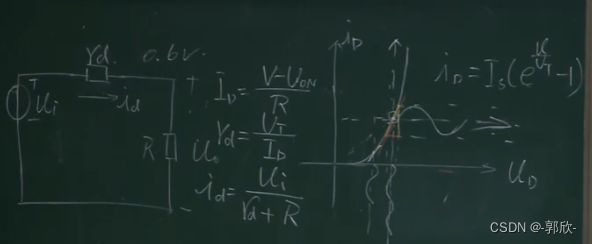 rd 0.6v.
+
Ui
-
id
R
Uo
+
-
I_D = (V-U_ON)/R
rd = V_T/I_D
id = Ui/(rd+R)
i_D
i_D = I_S(e^(U/U_T)-1)
U_D
CSDN @-郭欣-